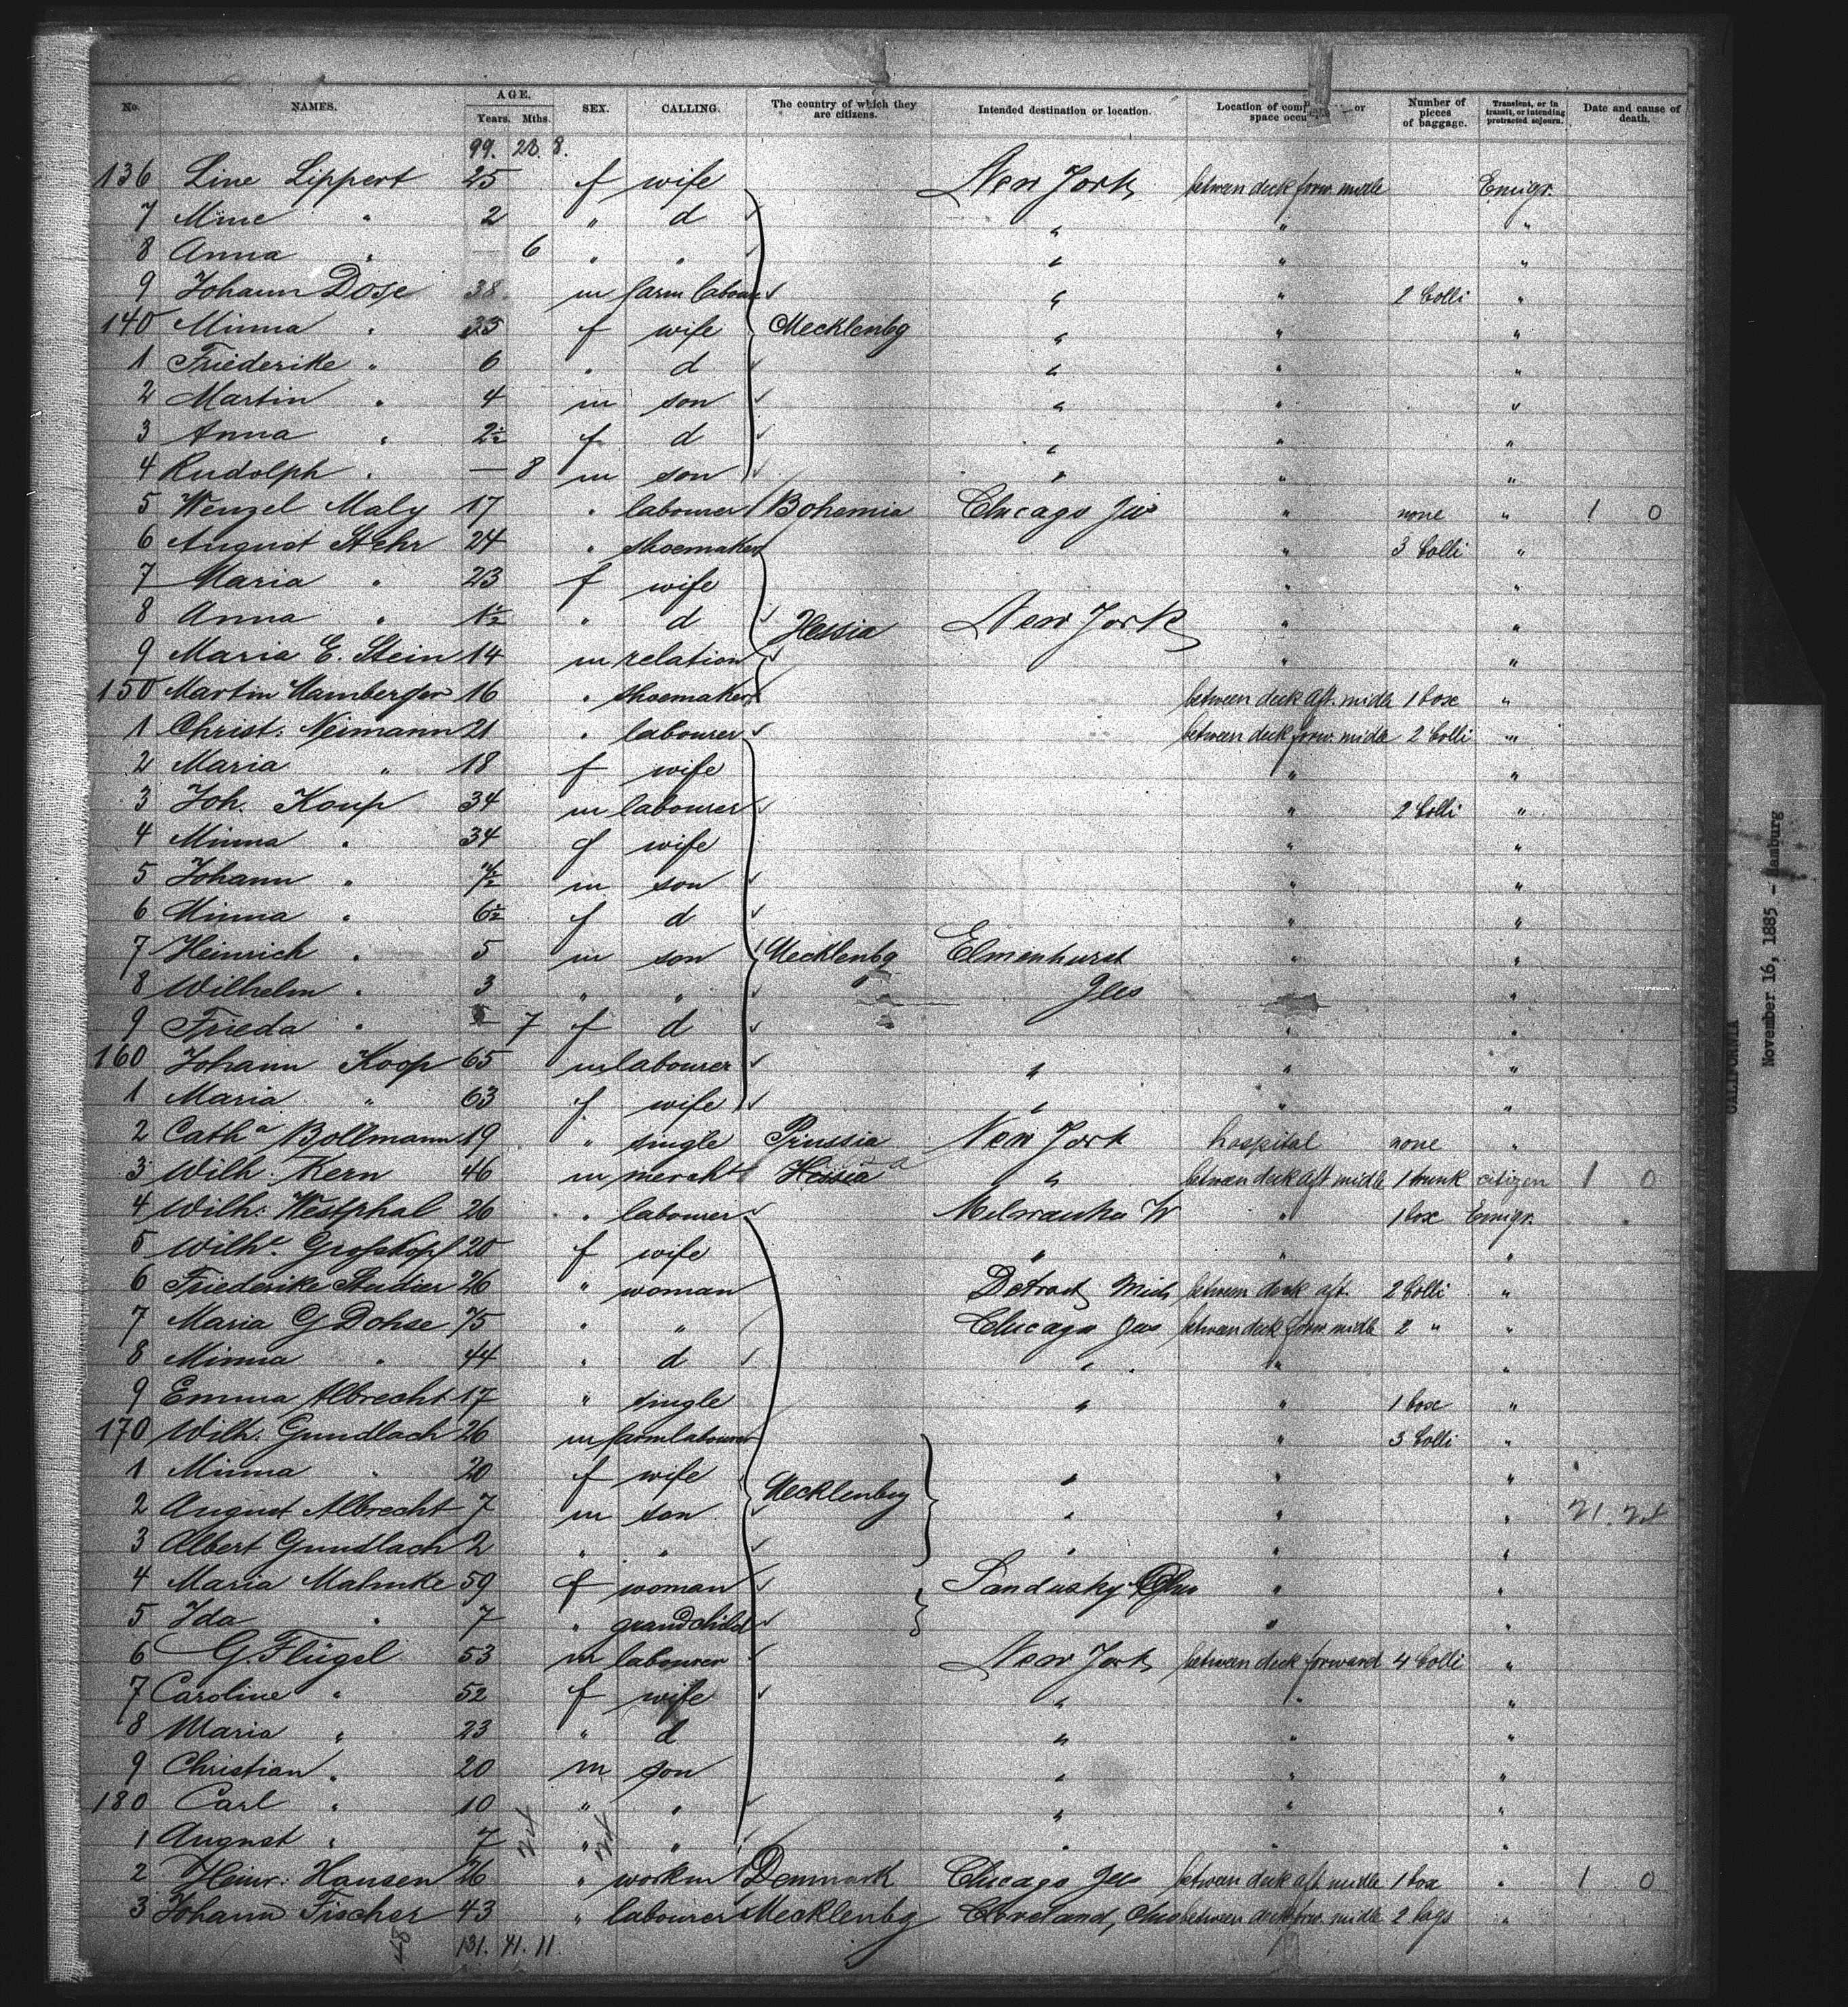 No. NAMES. AGE. Years. Mths. SEX. CALLING. The country of which they are citizens. Intended destination or location. Location of comp or space occu Number of pieces of baggage. Transient, or in transit, or intending protracted sojourn. Date and cause of death.
99. 28. 8.
136 Line Lippert 25 f wife New York between deck forw. midle Emigr.
7 Mine " 2 " d " " "
8 Anna " — 6 " " " " "
9 Johann Dose 38 m farm labour " " 2 Colli "
140 Minna " 35 f wife Mecklenbg " " "
1 Friederike " 6 " d " " "
2 Martin " 4 m son " " "
3 Anna " 2½ f d " " "
4 Rudolph " — 8 m son " " "
5 Wenzel Maly 17 " labourer Bohemia Chicago Ills " none " 1 0
6 August Stehr 24 " shoemaker " 3 Colli "
7 Maria " 23 f wife " "
8 Anna " 1½ " d Hessia New York " "
9 Maria E. Stein 14 m relation " "
150 Martin Hamberger 16 " shoemaker between deck aft. midle 1 box "
1 Christ. Neimann 21 " labourer between deck forw. midle 2 Colli "
2 Maria " 18 f wife " "
3 Joh. Koup 34 m labourer " 2 Colli "
4 Minna " 34 f wife " "
5 Johann " m son " "
6 Minna " 6½ f d " "
7 Heinrich " 5 m son Mecklenbg Elmenhurst " "
8 Wilhelm " 3 " " " Ills "
9 Frieda " — 7 f d " "
160 Johann Koop 65 m labourer " " "
1 Maria " 63 f wife " " "
2 Catha Bollmann 19 " single Prussia New York hospital none "
3 Wilh. Kern 46 m mercht Hessia " between deck aft midle 1 trunk citizen 1 0
4 Wilh. Westphal 26 " labourer Milwauke W " 1 box Emigr.
5 Wilhe. Grosskopf 20 f wife " " "
6 Friederike Studier 26 " woman Detroit Mich between deck aft. 2 Colli "
7 Maria G Dohse 75 " " Chicago Ills between deck forw midle 2 " "
8 Minna " 44 " d " " "
9 Emma Albrecht 17 " single " " 1 box "
170 Wilh. Gundlach 26 m farmlabourer " 3 Colli "
1 Minna " 20 f wife " " "
2 August Albrecht 7 m son Mecklenbg " " " 21.
3 Albert Gundlach 2 " " " " "
4 Maria Mahnke 59 f woman Sandusky Ohio " "
5 Ida " 7 " grandchild " "
6 G. Flügel 53 m labourer New York between deck forward 4 Colli "
7 Caroline " 52 f wife " " "
8 Maria " 23 " d " " "
9 Christian " 20 m son " " "
180 Carl " 10 " " " " "
1 August " 7 " " " " "
2 Heinr. Hansen 26 " workm Denmark Chicago Ills between deck aft midle 1 box " 1 0
3 Johann Fischer 43 " labourer Mecklenbg Cleveland, Ohio between deck forw. midle 2 bags "
48
131. 41. 11.
CALIFORNIA
November 16, 1885 - Hamburg